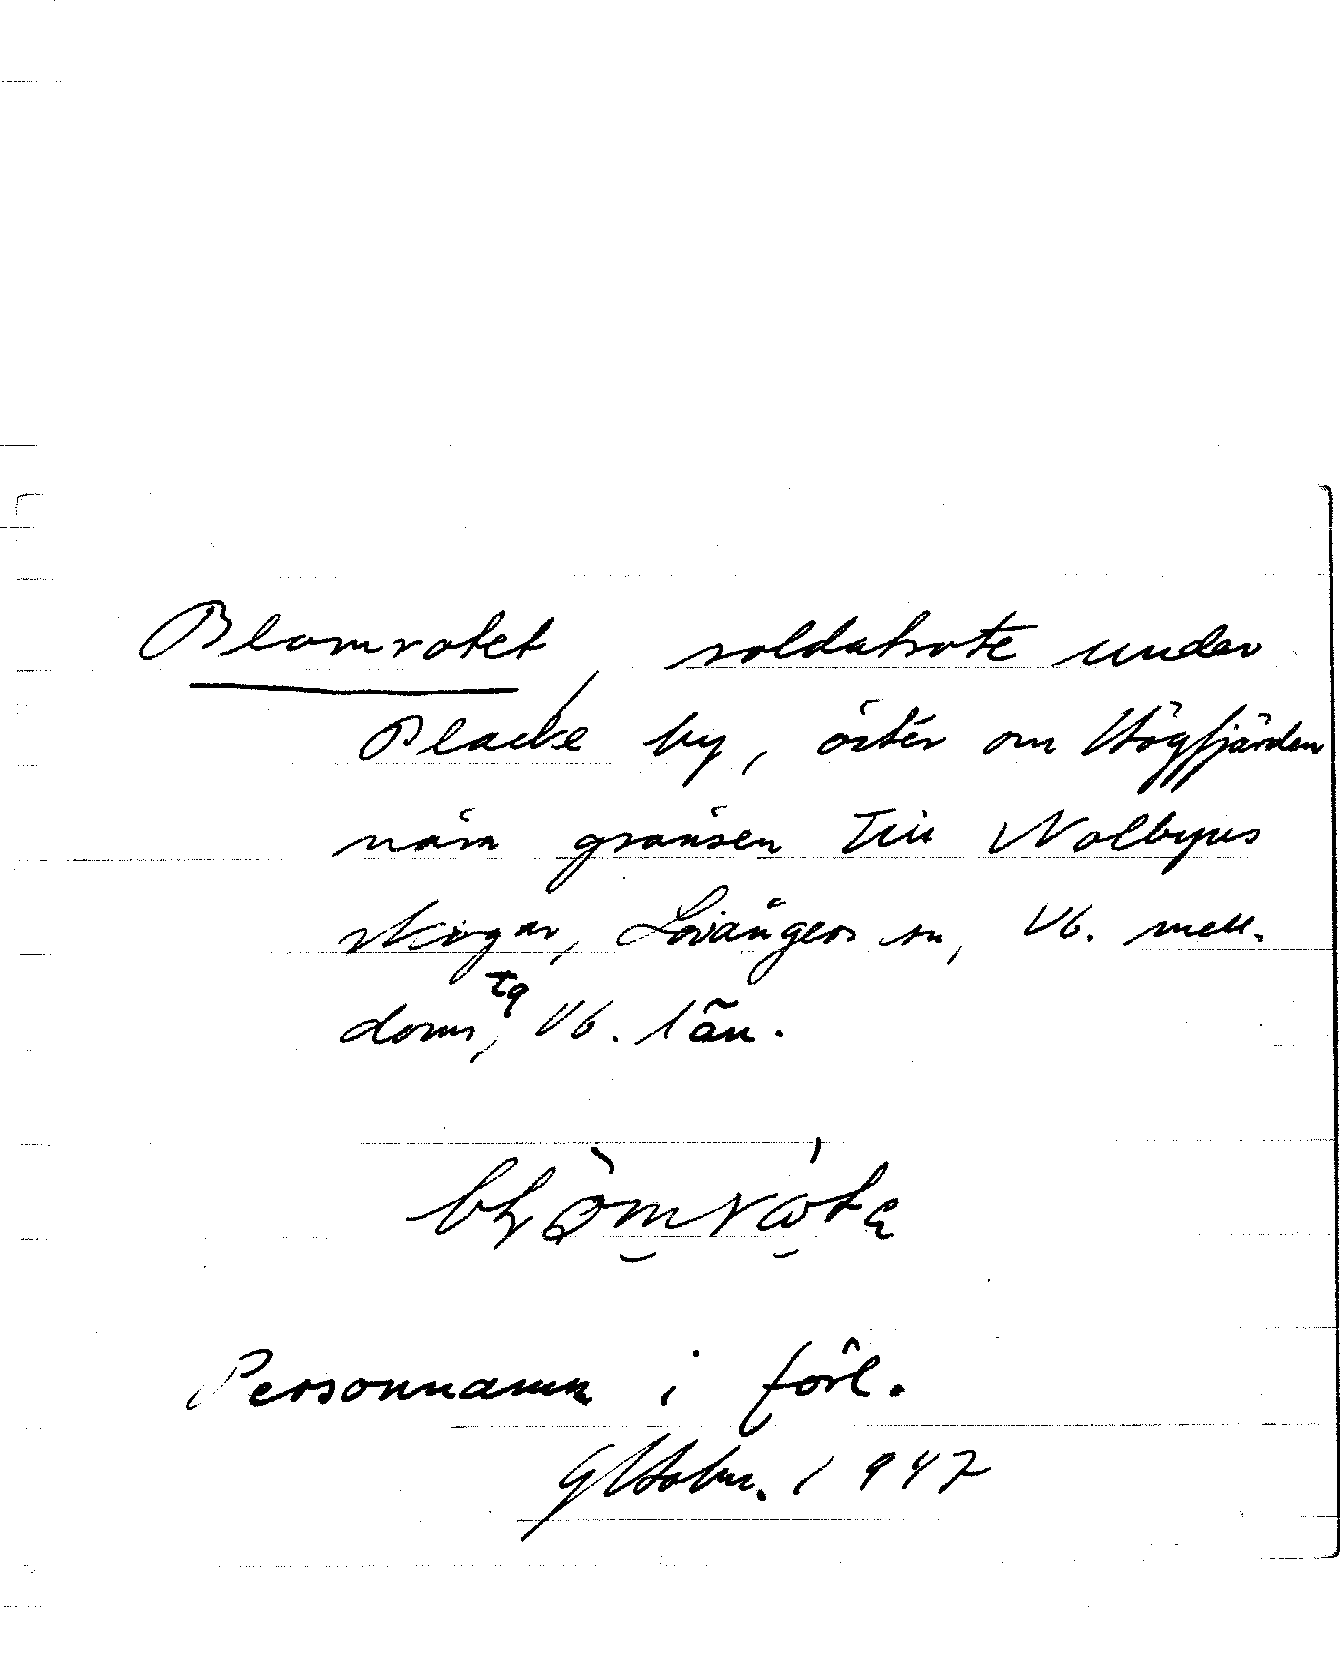 Blomrotet, soldatrote under
Blacke by, öster om Högfjärden
nära gränsen till Nolbyns
skogar, Lövångers sn, Vb. mell.
doms tg, Vb. län.
Personnamn i förl.
1947